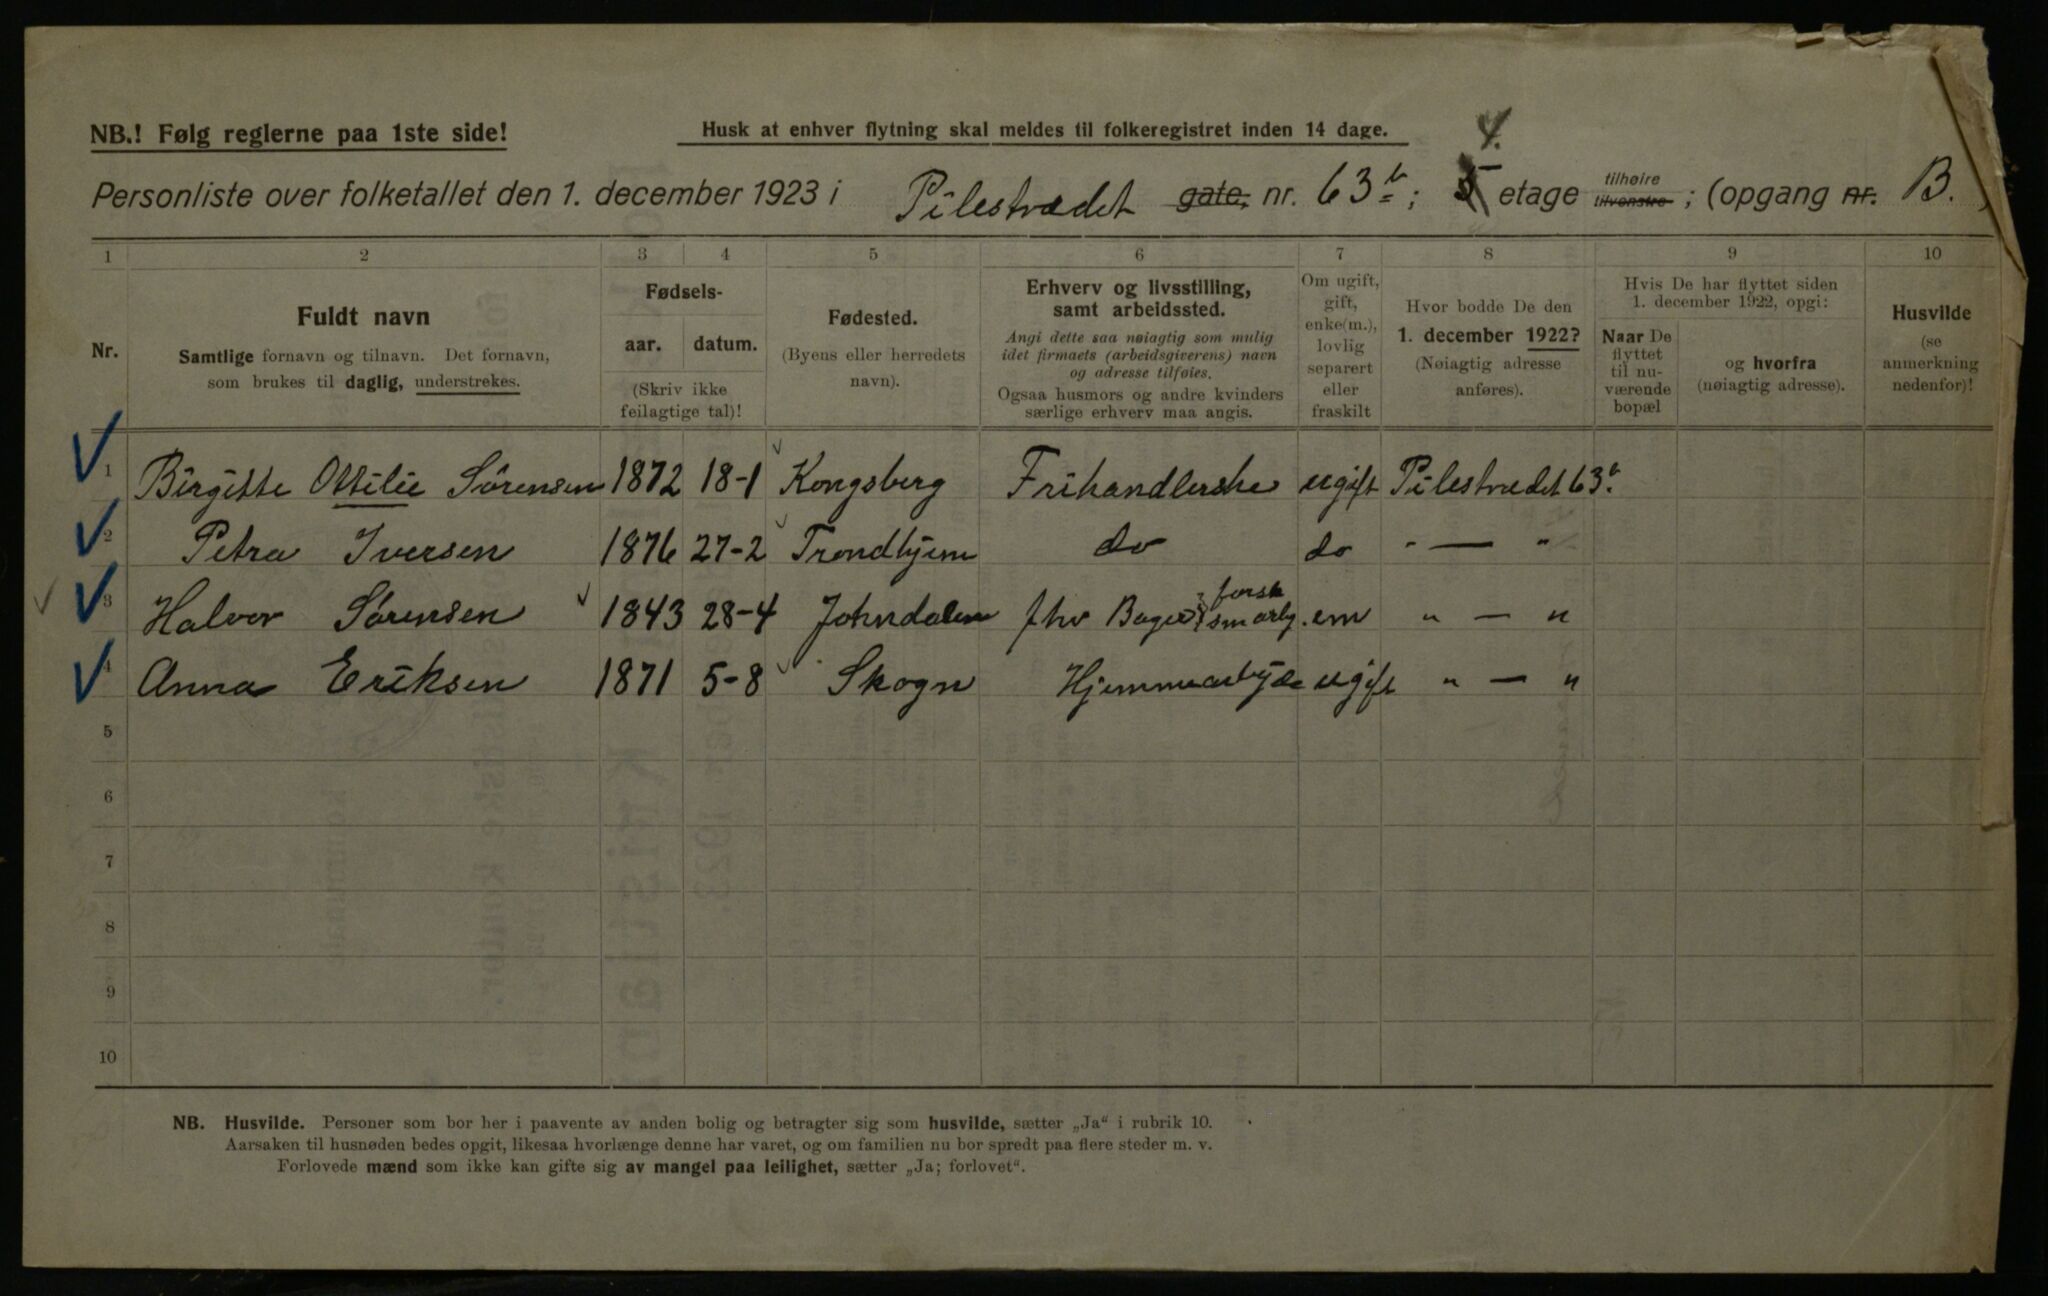 NB.! Følg reglerne paa 1ste side!
Husk at enhver flytning skal meldes til folkeregistret inden 14 dage.
4.
Personliste over folketallet den 1. december 1923 i Pilestrædet gate, nr. 63 b; 5 etage tilhøire tilvenstre; (opgang nr. B.)
1 2 3 4 5 6 7 8 9 10
Nr.
Fuldt navn
Samtlige fornavn og tilnavn. Det fornavn,
som brukes til daglig, understrekes.
Fødsels-
aar. datum.
(Skriv ikke
feilagtige tal)!
Fødested.
(Byens eller herredets
navn).
Erhverv og livsstilling,
samt arbeidssted.
Angi dette saa nøiagtig som mulig
idet firmaets (arbeidsgiverens) navn
og adresse tilføies.
Ogsaa husmors og andre kvinders
særlige erhverv maa angis.
Om ugift,
gift,
enke(m.),
lovlig
separert
eller
fraskilt
Hvor bodde De den
1. december 1922?
(Nøiagtig adresse
anføres).
Hvis De har flyttet siden
1. december 1922, opgi:
Naar De
flyttet
til nu-
værende
bopæl
og hvorfra
(nøiagtig adresse).
Husvilde
(se
anmerkning
nedenfor)!
1 Birgitte Ottilie Sørensen 1872 18-1 Kongsberg Frihandlerske ugift Pilestrædet 63 b.
2 Petra Iversen 1876 27-2 Trondhjem do do " — "
3 Halvor Sørensen 1843 28-4 Johndalen fhv Bager forsk. em " — "
4 Anna Eriksen 1871 5-8 Skogn Hjemmearbejde ugift " — "
5
6
7
8
9
10
NB. Husvilde. Personer som bor her i paavente av anden bolig og betragter sig som husvilde, sætter „Ja“ i rubrik 10.
Aarsaken til husnøden bedes opgit, likesaa hvorlænge denne har varet, og om familien nu bor spredt paa flere steder m. v.
Forlovede mænd som ikke kan gifte sig av mangel paa leilighet, sætter „Ja; forlovet“.